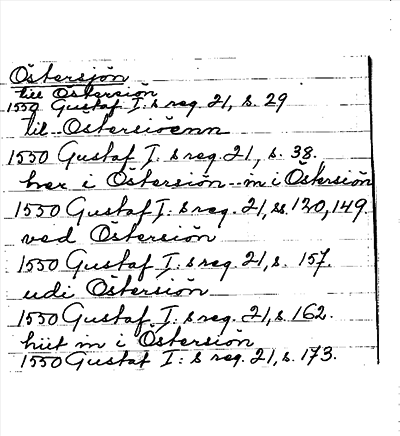 Östersjön
till Östersiön
1550 Gustaf I:s reg. 21, s. 29
til Östersiöenn
1550 Gustaf I:s reg. 21, s. 38.
her i Östersiön -- in i Östersiön
1550 Gustaf I:s reg. 21, ss. 120, 149.
ved Östersiön
1550 Gustaf I:s reg. 21, s. 157.
udi Östersiön
1550 Gustaf I:s reg. 21, s. 162.
hiit in i Östersiön
1550 Gustaf I:s reg. 21, s. 173.